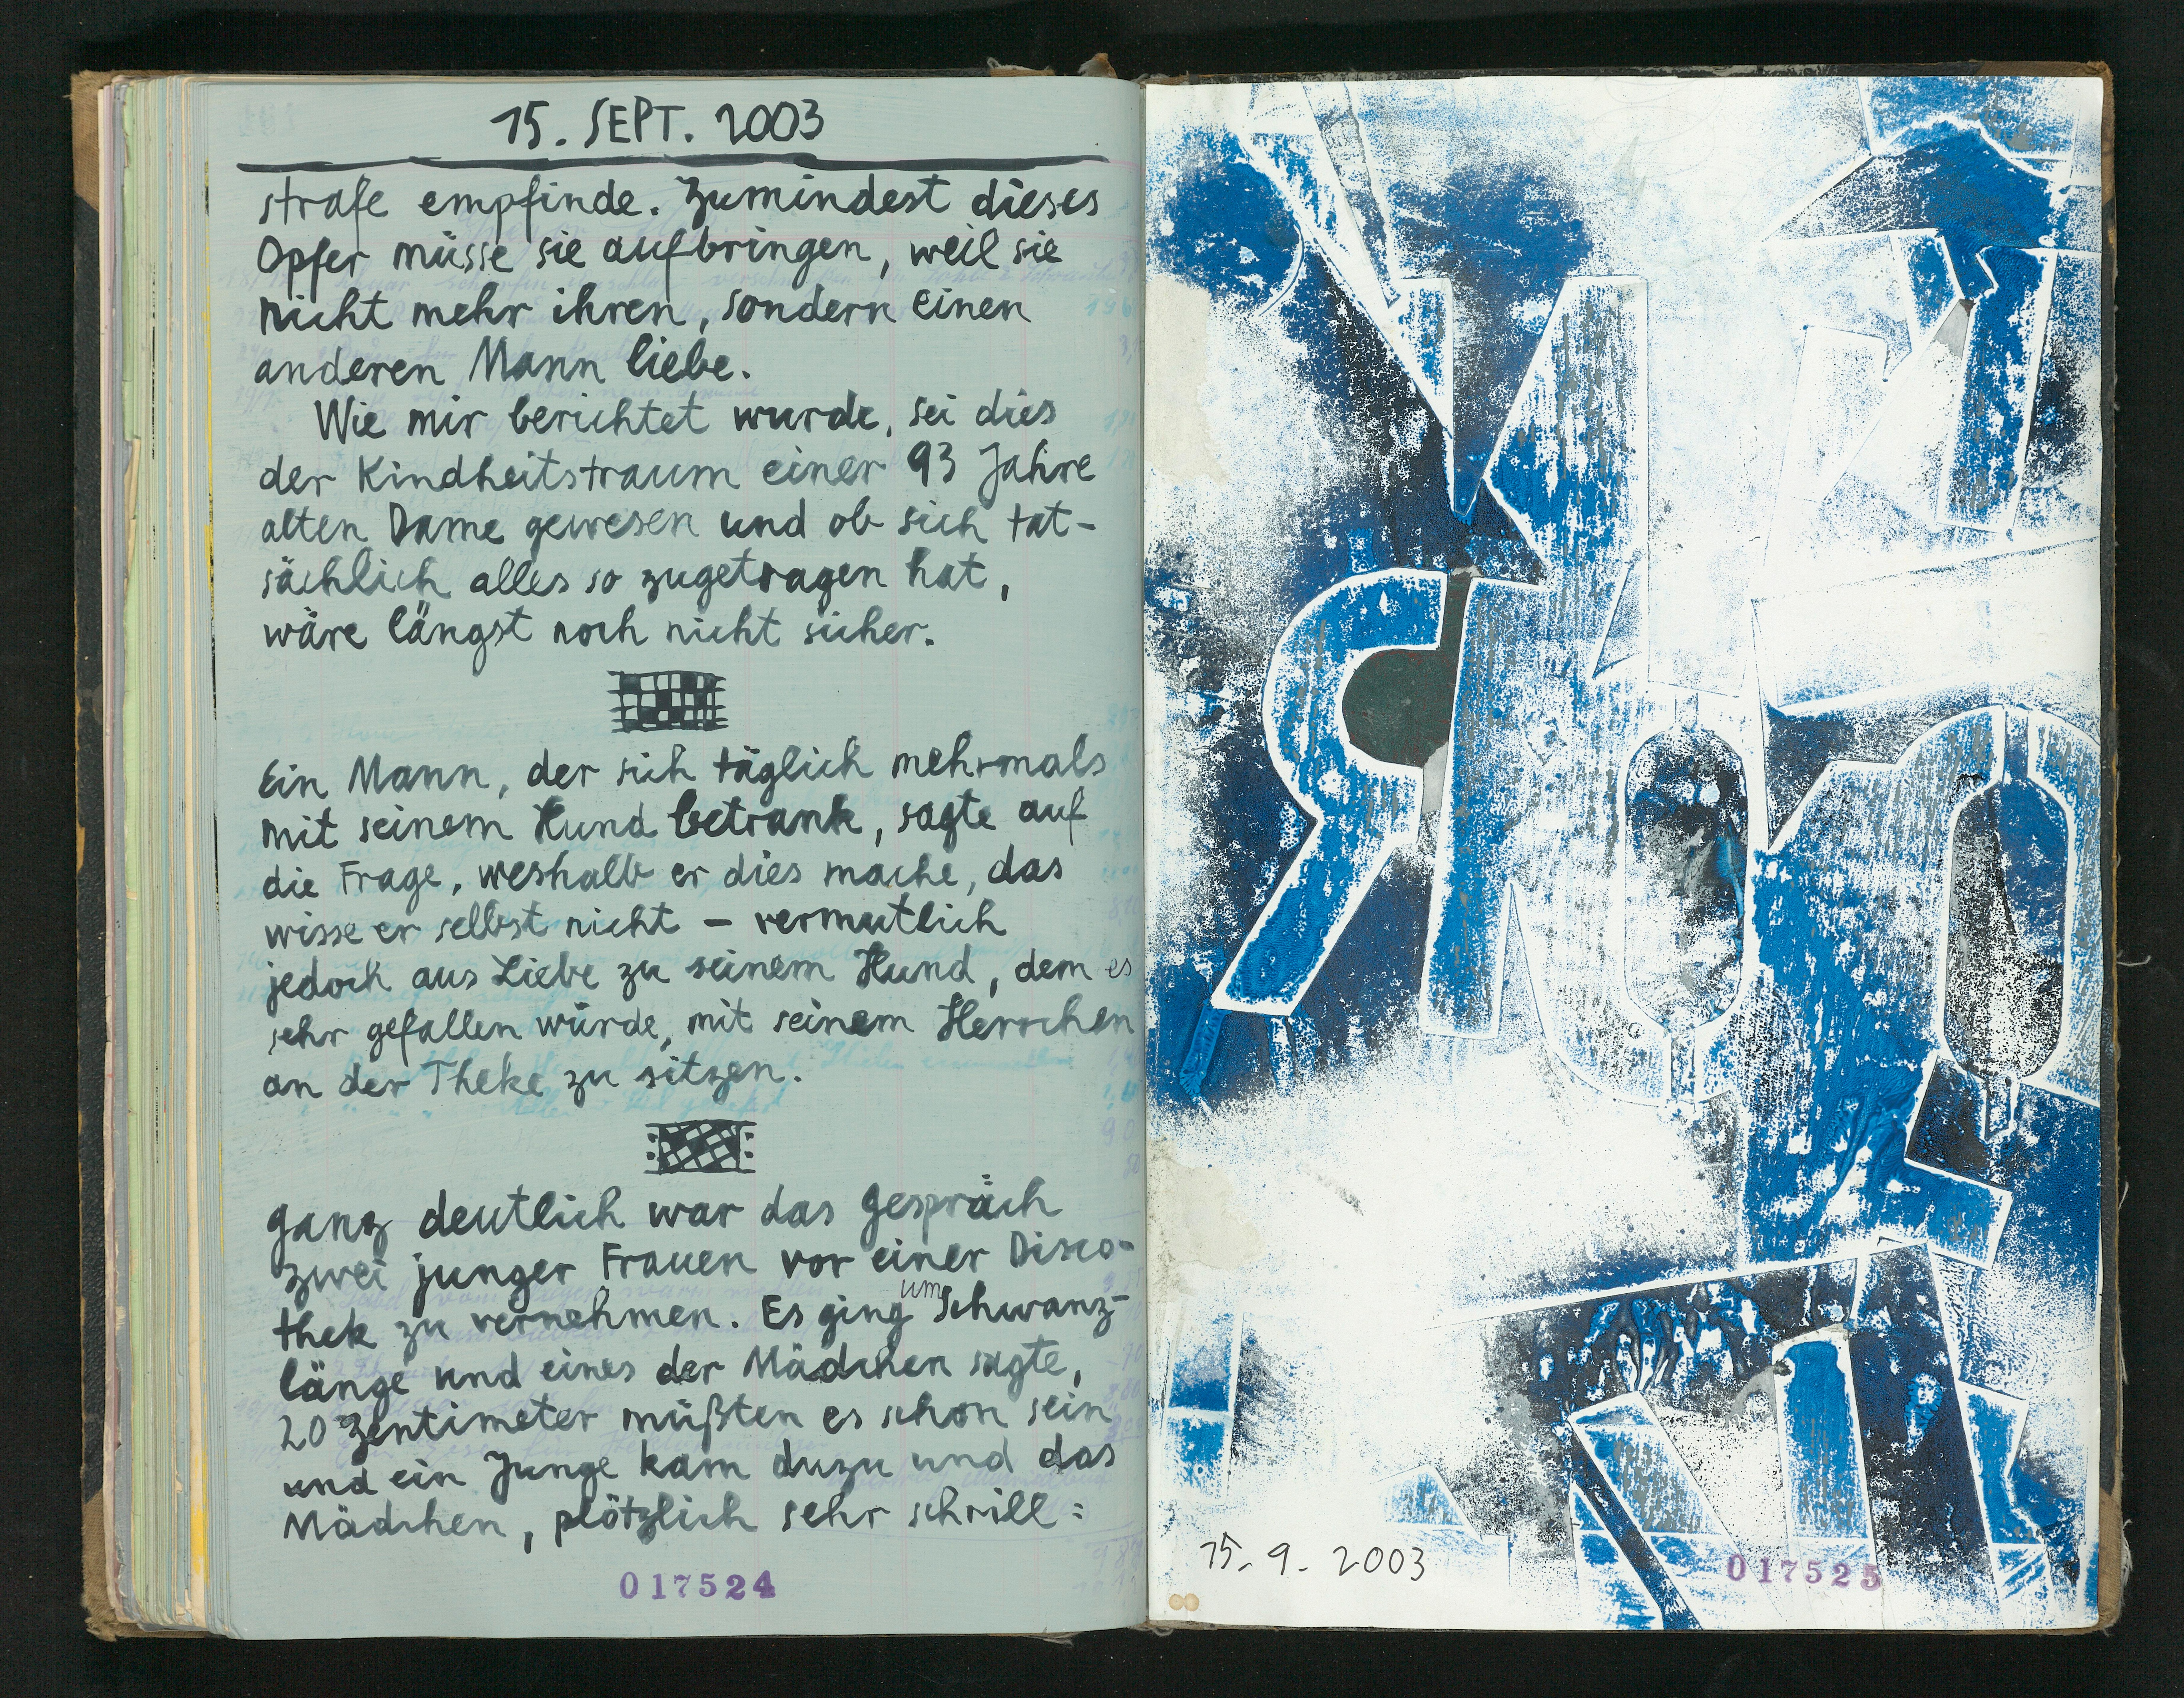 15. SEPT. 2003
strafe empfinde. Zumindest dieses
Opfer müsse sie aufbringen, weil sie
nicht mehr ihren, sondern einen
anderen Mann liebe.
Wie mir berichtet wurde, sei dies
der Kindheitstraum einer 93 Jahre
alten Dame gewesen und ob sich tat-
sächlich alles so zugetragen hat,
wäre längst noch nicht sicher.
Ein Mann, der sich täglich mehrmals
mit seinem Hund betrank, sagte auf
die Frage, weshalb er dies mache, das
wisse er selbst nicht – vermutlich
jedoch aus Liebe zu seinem Hund, dem es
sehr gefallen würde, mit seinem Herrchen
an der Theke zu sitzen.
Ganz deutlich war das Gespräch
zwei junger Frauen vor einer Disco-
thek zu vernehmen. Es ging um Schwanz-
länge und eines der Mädchen sagte,
20 Zentimeter müßten es schon sein
und ein Junge kam dazu und das
Mädchen, plötzlich sehr schrill:
017524
15. 9. 2003
017525